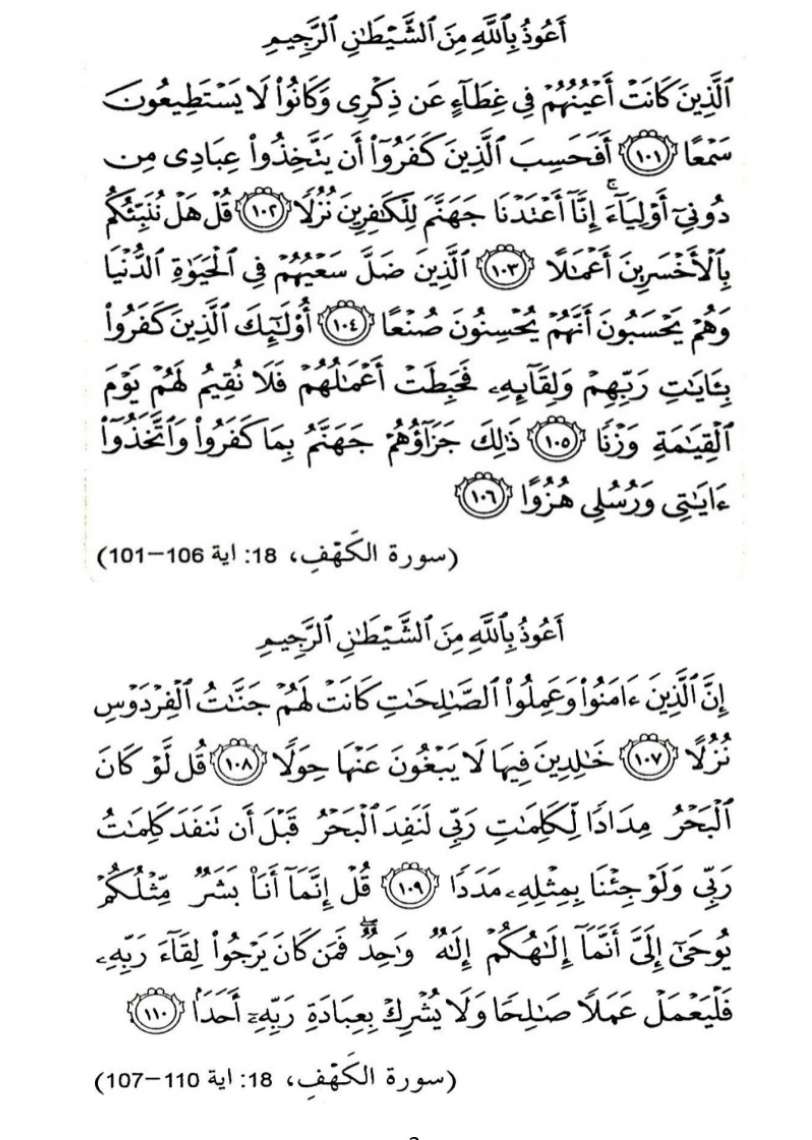 أَعُوذُ بِٱللَّهِ مِنَ ٱلشَّيْطَٰنِ ٱلرَّجِيمِ
ٱلَّذِينَ كَانَتْ أَعْيُنُهُمْ فِى غِطَآءٍ عَن ذِكْرِى وَكَانُوا۟ لَا يَسْتَطِيعُونَ
سَمْعًا ١٠١ أَفَحَسِبَ ٱلَّذِينَ كَفَرُوٓا۟ أَن يَتَّخِذُوا۟ عِبَادِى مِن
دُونِىٓ أَوْلِيَآءَ ۚ إِنَّآ أَعْتَدْنَا جَهَنَّمَ لِلْكَٰفِرِينَ نُزُلًا ١٠٢ قُلْ هَلْ نُنَبِّئُكُم
بِٱلْأَخْسَرِينَ أَعْمَٰلًا ١٠٣ ٱلَّذِينَ ضَلَّ سَعْيُهُمْ فِى ٱلْحَيَوٰةِ ٱلدُّنْيَا
وَهُمْ يَحْسَبُونَ أَنَّهُمْ يُحْسِنُونَ صُنْعًا ١٠٤ أُو۟لَٰٓئِكَ ٱلَّذِينَ كَفَرُوا۟
بِـَٔايَٰتِ رَبِّهِمْ وَلِقَآئِهِۦ فَحَبِطَتْ أَعْمَٰلُهُمْ فَلَا نُقِيمُ لَهُمْ يَوْمَ
ٱلْقِيَٰمَةِ وَزْنًا ١٠٥ ذَٰلِكَ جَزَآؤُهُمْ جَهَنَّمُ بِمَا كَفَرُوا۟ وَٱتَّخَذُوٓا۟
ءَايَٰتِى وَرُسُلِى هُزُوًا ١٠٦
(سورة الكَهْفِ، 18: اية 106–101)
أَعُوذُ بِٱللَّهِ مِنَ ٱلشَّيْطَٰنِ ٱلرَّجِيمِ
إِنَّ ٱلَّذِينَ ءَامَنُوا۟ وَعَمِلُوا۟ ٱلصَّٰلِحَٰتِ كَانَتْ لَهُمْ جَنَّٰتُ ٱلْفِرْدَوْسِ
نُزُلًا ١٠٧ خَٰلِدِينَ فِيهَا لَا يَبْغُونَ عَنْهَا حِوَلًا ١٠٨ قُل لَّوْ كَانَ
ٱلْبَحْرُ مِدَادًا لِّكَلِمَٰتِ رَبِّى لَنَفِدَ ٱلْبَحْرُ قَبْلَ أَن تَنفَدَ كَلِمَٰتُ
رَبِّى وَلَوْ جِئْنَا بِمِثْلِهِۦ مَدَدًا ١٠٩ قُلْ إِنَّمَآ أَنَا۠ بَشَرٌ مِّثْلُكُمْ
يُوحَىٰٓ إِلَىَّ أَنَّمَآ إِلَٰهُكُمْ إِلَٰهٌ وَٰحِدٌ ۖ فَمَن كَانَ يَرْجُوا۟ لِقَآءَ رَبِّهِۦ
فَلْيَعْمَلْ عَمَلًا صَٰلِحًا وَلَا يُشْرِكْ بِعِبَادَةِ رَبِّهِۦٓ أَحَدًۢا ١١٠
(سورة الكَهْفِ، 18: اية 110–107)